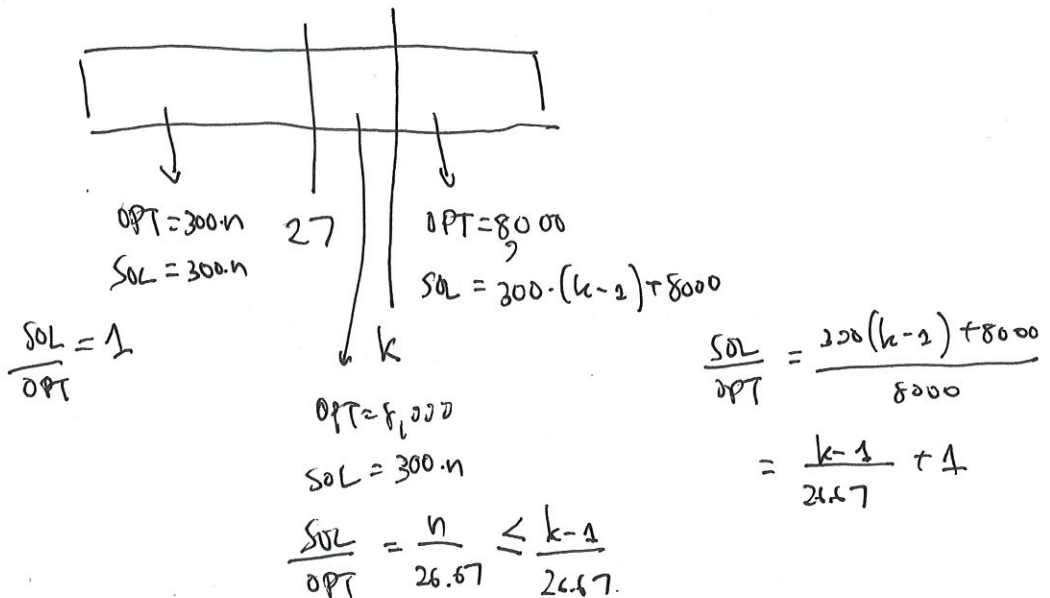 OPT = 300·n
SOL = 300·n
SOL/OPT = 1
27
k
OPT = 8,000
SOL = 300·n
SOL/OPT = n/26.67 ≤ k-1/26.67.
OPT = 8,000
SOL = 300·(k-1)+8000
SOL/OPT = 300(k-1)+8000/8000
= k-1/26.67 + 1